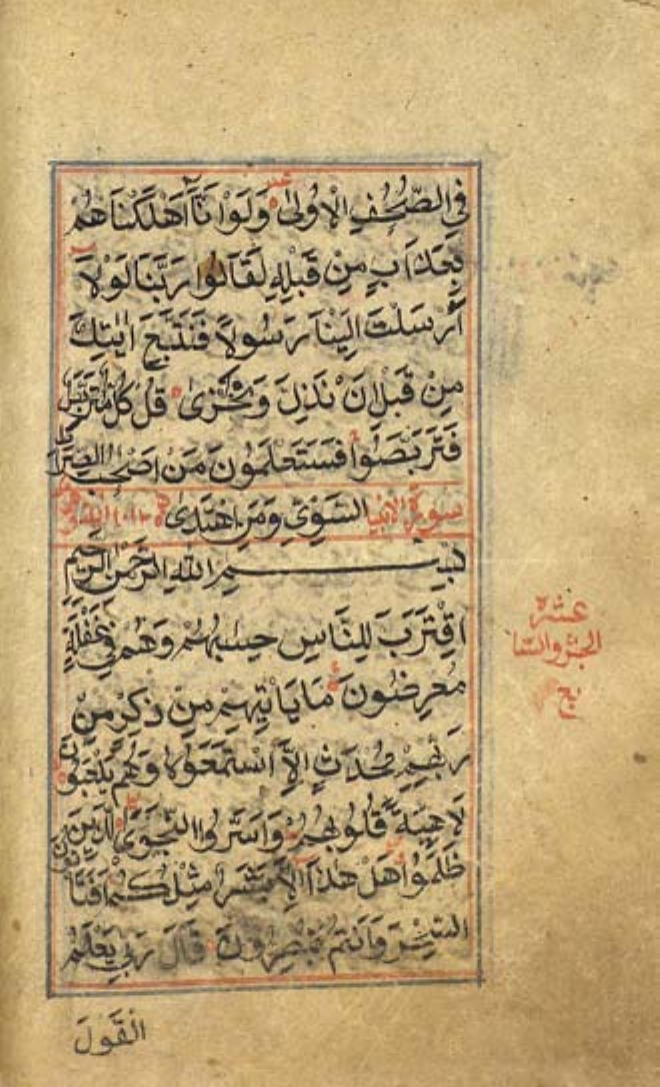 فِي الصُّحُفِ الْاُولٰى وَلَوْ اَنَّا اَهْلَكْنَاهُمْ
بِعَذَابٍ مِنْ قَبْلِهِ لَقَالُوا رَبَّنَا لَوْلَا
اَرْسَلْتَ اِلَيْنَا رَسُولًا فَنَتَّبِعَ اٰيٰتِكَ
مِنْ قَبْلِ اَنْ نَذِلَّ وَنَخْزٰى قُلْ كُلٌّ مُتَرَبِّصٌ
فَتَرَبَّصُوا فَسَتَعْلَمُونَ مَنْ اَصْحٰبُ الصِّرَاطِ
سورة الانبيا السَّوِيِّ وَمَنِ اهْتَدٰى
بِسْمِ اللهِ الرَّحْمٰنِ الرَّحِيمِ
اِقْتَرَبَ لِلنَّاسِ حِسَابُهُمْ وَهُمْ فِي غَفْلَةٍ
مُعْرِضُونَ مَا يَاْتِيهِمْ مِنْ ذِكْرٍ مِنْ
رَبِّهِمْ مُحْدَثٍ اِلَّا اسْتَمَعُوهُ وَهُمْ يَلْعَبُونَ
لَاهِيَةً قُلُوبُهُمْ وَاَسَرُّوا النَّجْوَى الَّذِينَ
ظَلَمُوا هَلْ هٰذَا اِلَّا بَشَرٌ مِثْلُكُمْ اَفَتَاْتُونَ
السِّحْرَ وَاَنْتُمْ تُبْصِرُونَ قَالَ رَبِّي يَعْلَمُ
الْقَوْلَ
عشرة
الجزو السا
بع